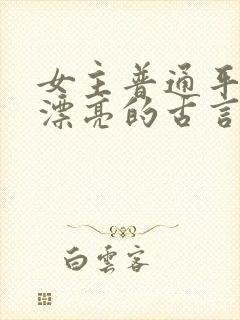 女主普通平
漂亮的古言
白雲客